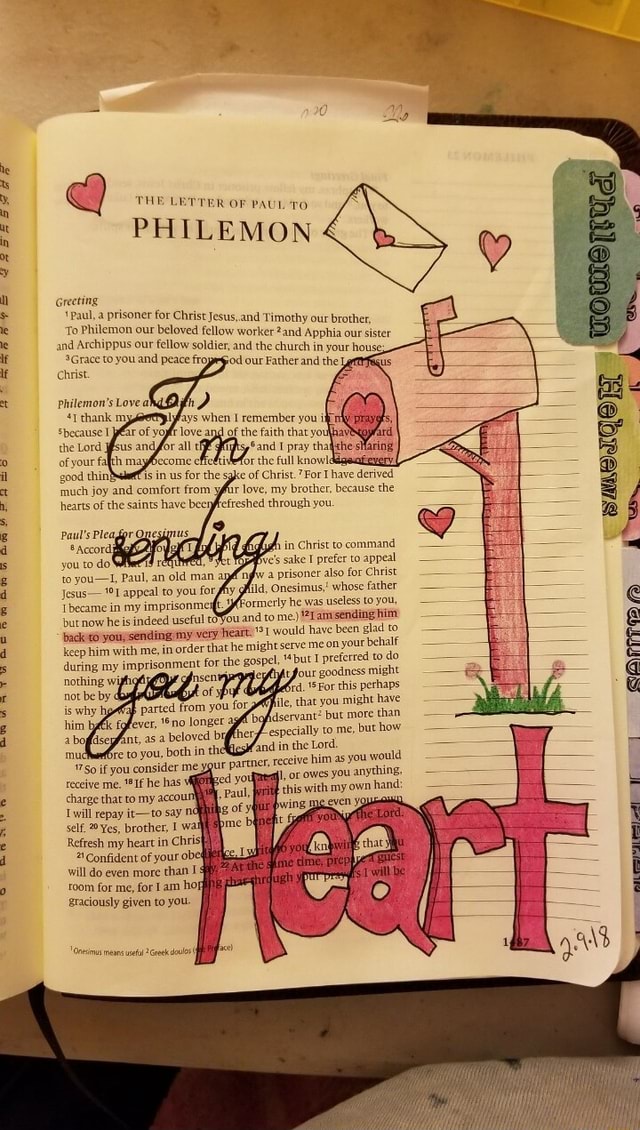 THE LETTER OF PAUL TO
PHILEMON
Greeting
1 Paul, a prisoner for Christ Jesus, and Timothy our brother,
To Philemon our beloved fellow worker 2 and Apphia our sister
and Archippus our fellow soldier, and the church in your house:
3 Grace to you and peace from God our Father and the Lord Jesus
Christ.
Philemon's Love and Faith
4 I thank my God always when I remember you in my prayers,
5 because I hear of your love and of the faith that you have toward
the Lord Jesus and for all the saints, 6 and I pray that the sharing
of your faith may become effective for the full knowledge of every
good thing that is in us for the sake of Christ. 7 For I have derived
much joy and comfort from your love, my brother, because the
hearts of the saints have been refreshed through you.
Paul's Plea for Onesimus
8 Accordingly, though I am bold enough in Christ to command
you to do what is required, 9 yet for love's sake I prefer to appeal
to you—I, Paul, an old man and now a prisoner also for Christ
Jesus— 10 I appeal to you for my child, Onesimus,1 whose father
I became in my imprisonment. 11 (Formerly he was useless to you,
but now he is indeed useful to you and to me.) 12 I am sending him
back to you, sending my very heart. 13 I would have been glad to
keep him with me, in order that he might serve me on your behalf
during my imprisonment for the gospel, 14 but I preferred to do
nothing without your consent in order that your goodness might
not be by compulsion but of your own accord. 15 For this perhaps
is why he was parted from you for a while, that you might have
him back forever, 16 no longer as a bondservant2 but more than
a bondservant, as a beloved brother—especially to me, but how
much more to you, both in the flesh and in the Lord.
17 So if you consider me your partner, receive him as you would
receive me. 18 If he has wronged you at all, or owes you anything,
charge that to my account. 19 I, Paul, write this with my own hand:
I will repay it—to say nothing of your owing me even your own
self. 20 Yes, brother, I want some benefit from you in the Lord.
Refresh my heart in Christ.
21 Confident of your obedience, I write to you, knowing that you
will do even more than I say. 22 At the same time, prepare a guest
room for me, for I am hoping that through your prayers I will be
graciously given to you.
1 Onesimus means useful 2 Greek doulos (see Preface)
I'm
sending
you my
Heart
2.9.18
Philemon
Hebrews
James